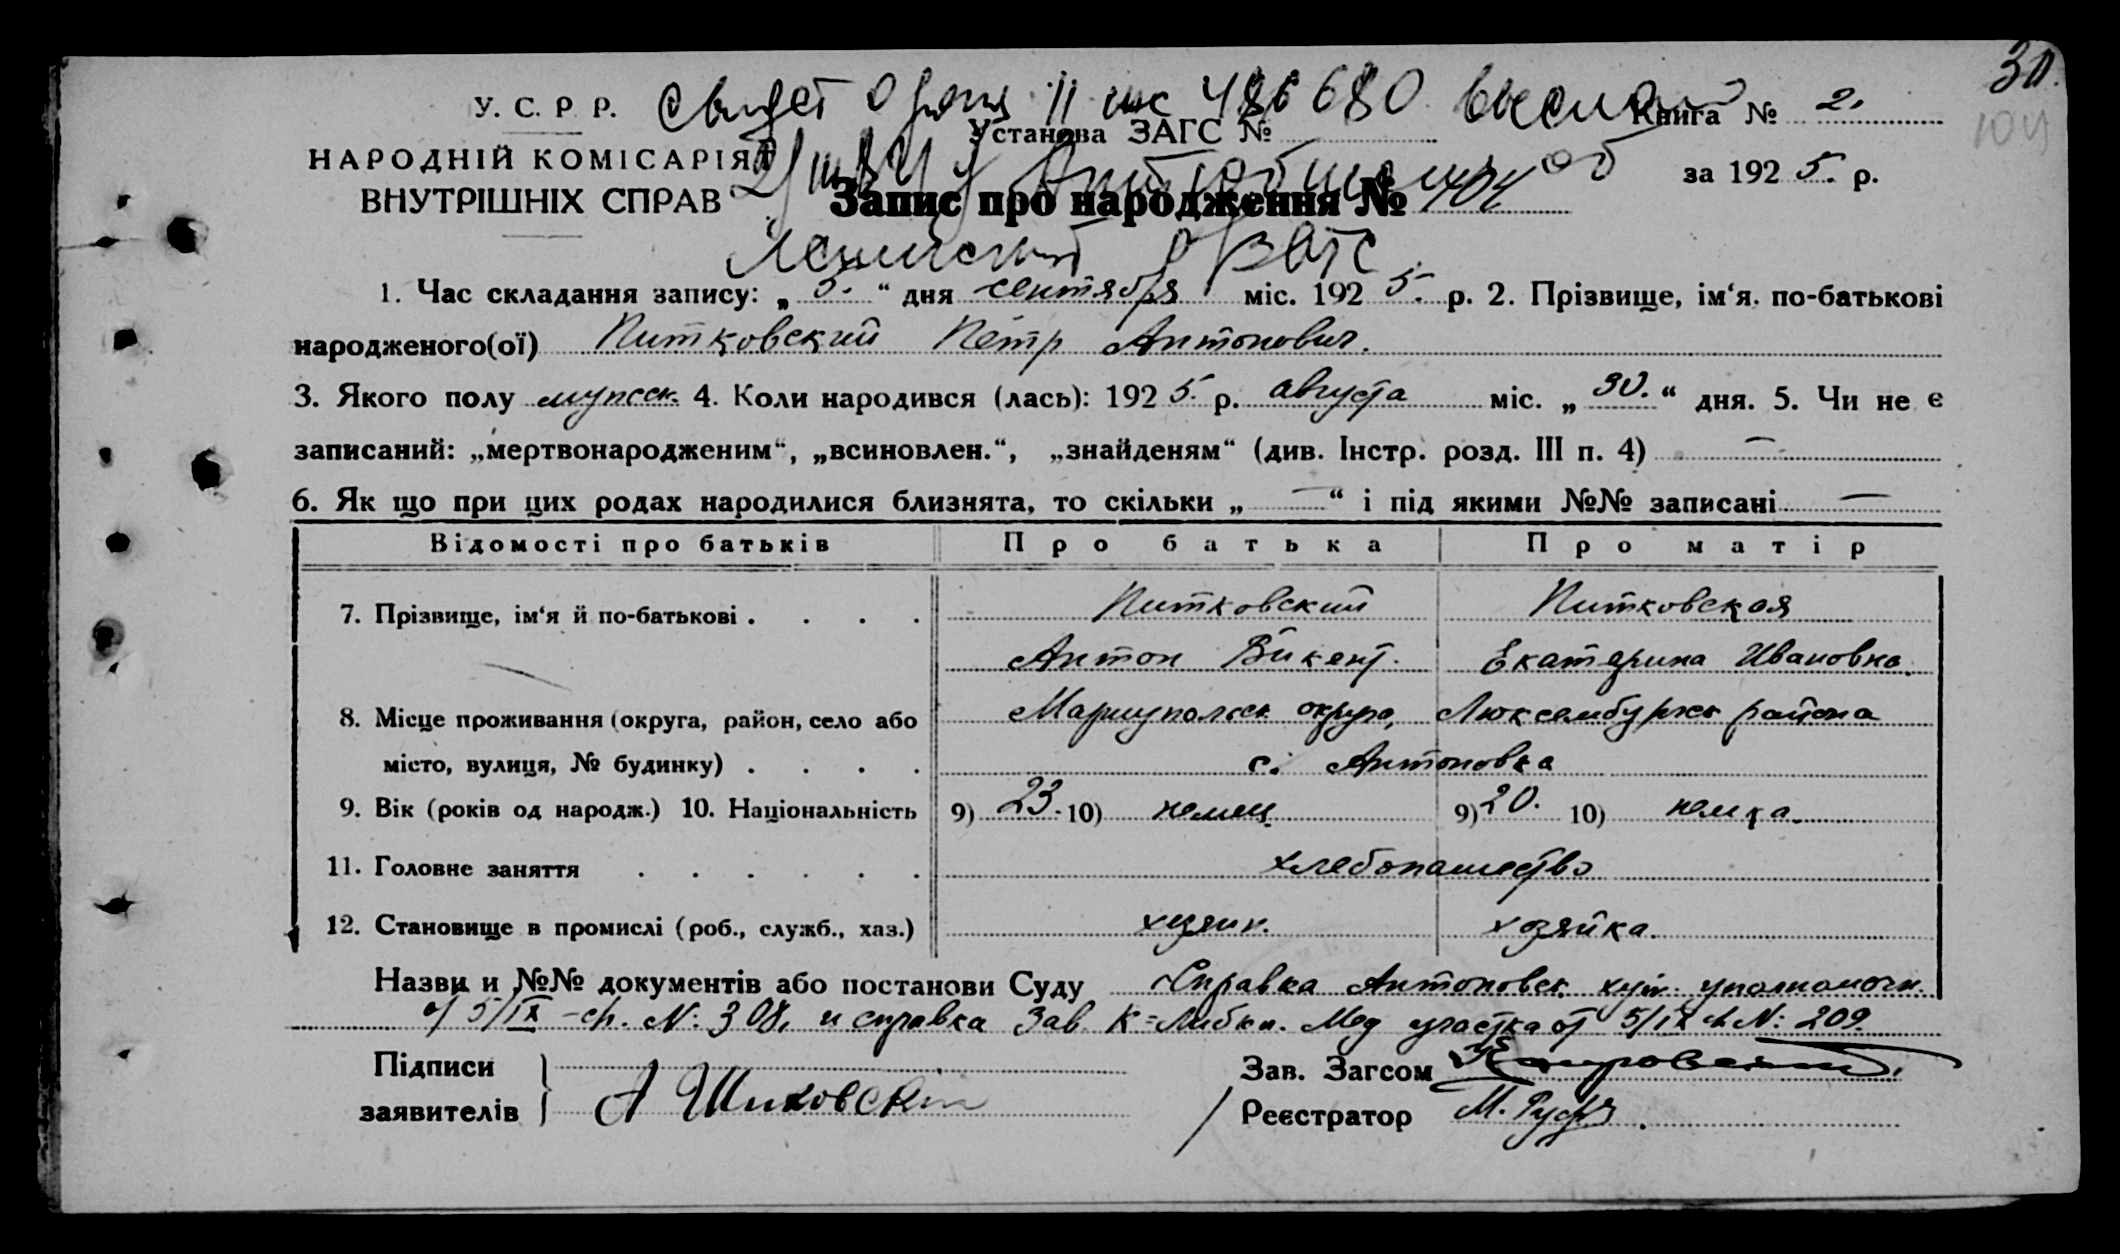 30.
104
Свидет о рожд II шс 486680 выслано
У. С. Р. Р.
Установа ЗАГС №
Книга № 2.
НАРОДНІЙ КОМІСАРІЯТ
ВНУТРІШНІХ СПРАВ
за 1925. р.
Запис про народження № 404
1. Час складання запису: „5.“ дня сентября міс. 1925. р. 2. Прізвище, ім‘я. по-батькові
народженого(ої) Питковский Петр Антонович.
3. Якого полу мужеск. 4. Коли народився (лась): 1925. р. августа міс. „30.“ дня. 5. Чи не є
записаний: „мертвонародженим“, „всиновлен.“, „знайденям“ (див. Інстр. розд. III п. 4) —
6. Як що при цих родах народилися близнята, то скільки „—“ і під якими №№ записані —
Відомості про батьків Про батька Про матір
7. Прізвище, ім‘я й по-батькові . . . . Питковский Питковская
Антон Викент. Екатерина Ивановна.
8. Місце проживання (округа, район, село або Мариупольск округа, Люксембургск района
місто, вулиця, № будинку) . . . . с. Антоновка
9. Вік (років од народж.) 10. Національність 9) 23. 10) немец. 9) 20. 10) немка.
11. Головне заняття . . . . . . хлебопашество
12. Становище в промислі (роб., служб., хаз.) хозяин. хозяйка.
Назви и №№ документів або постанови Суду Справка Антоновск. уполномочн.
от 5/IX – сч. N: 308, и справка Зав. К=Либкн. Мед участка от 5/IX N: 209.
Підписи
заявителів
Зав. Загсом
Реєстратор